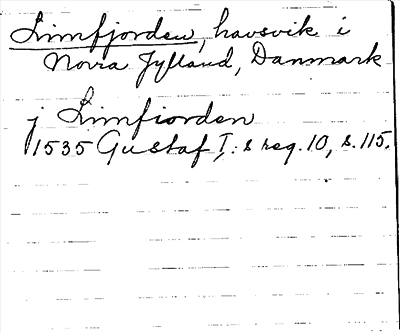 Limfjorden, havsvik i
Norra Jylland, Danmark
j Limfiorden
1535 Gustaf I:s reg. 10, s. 115.